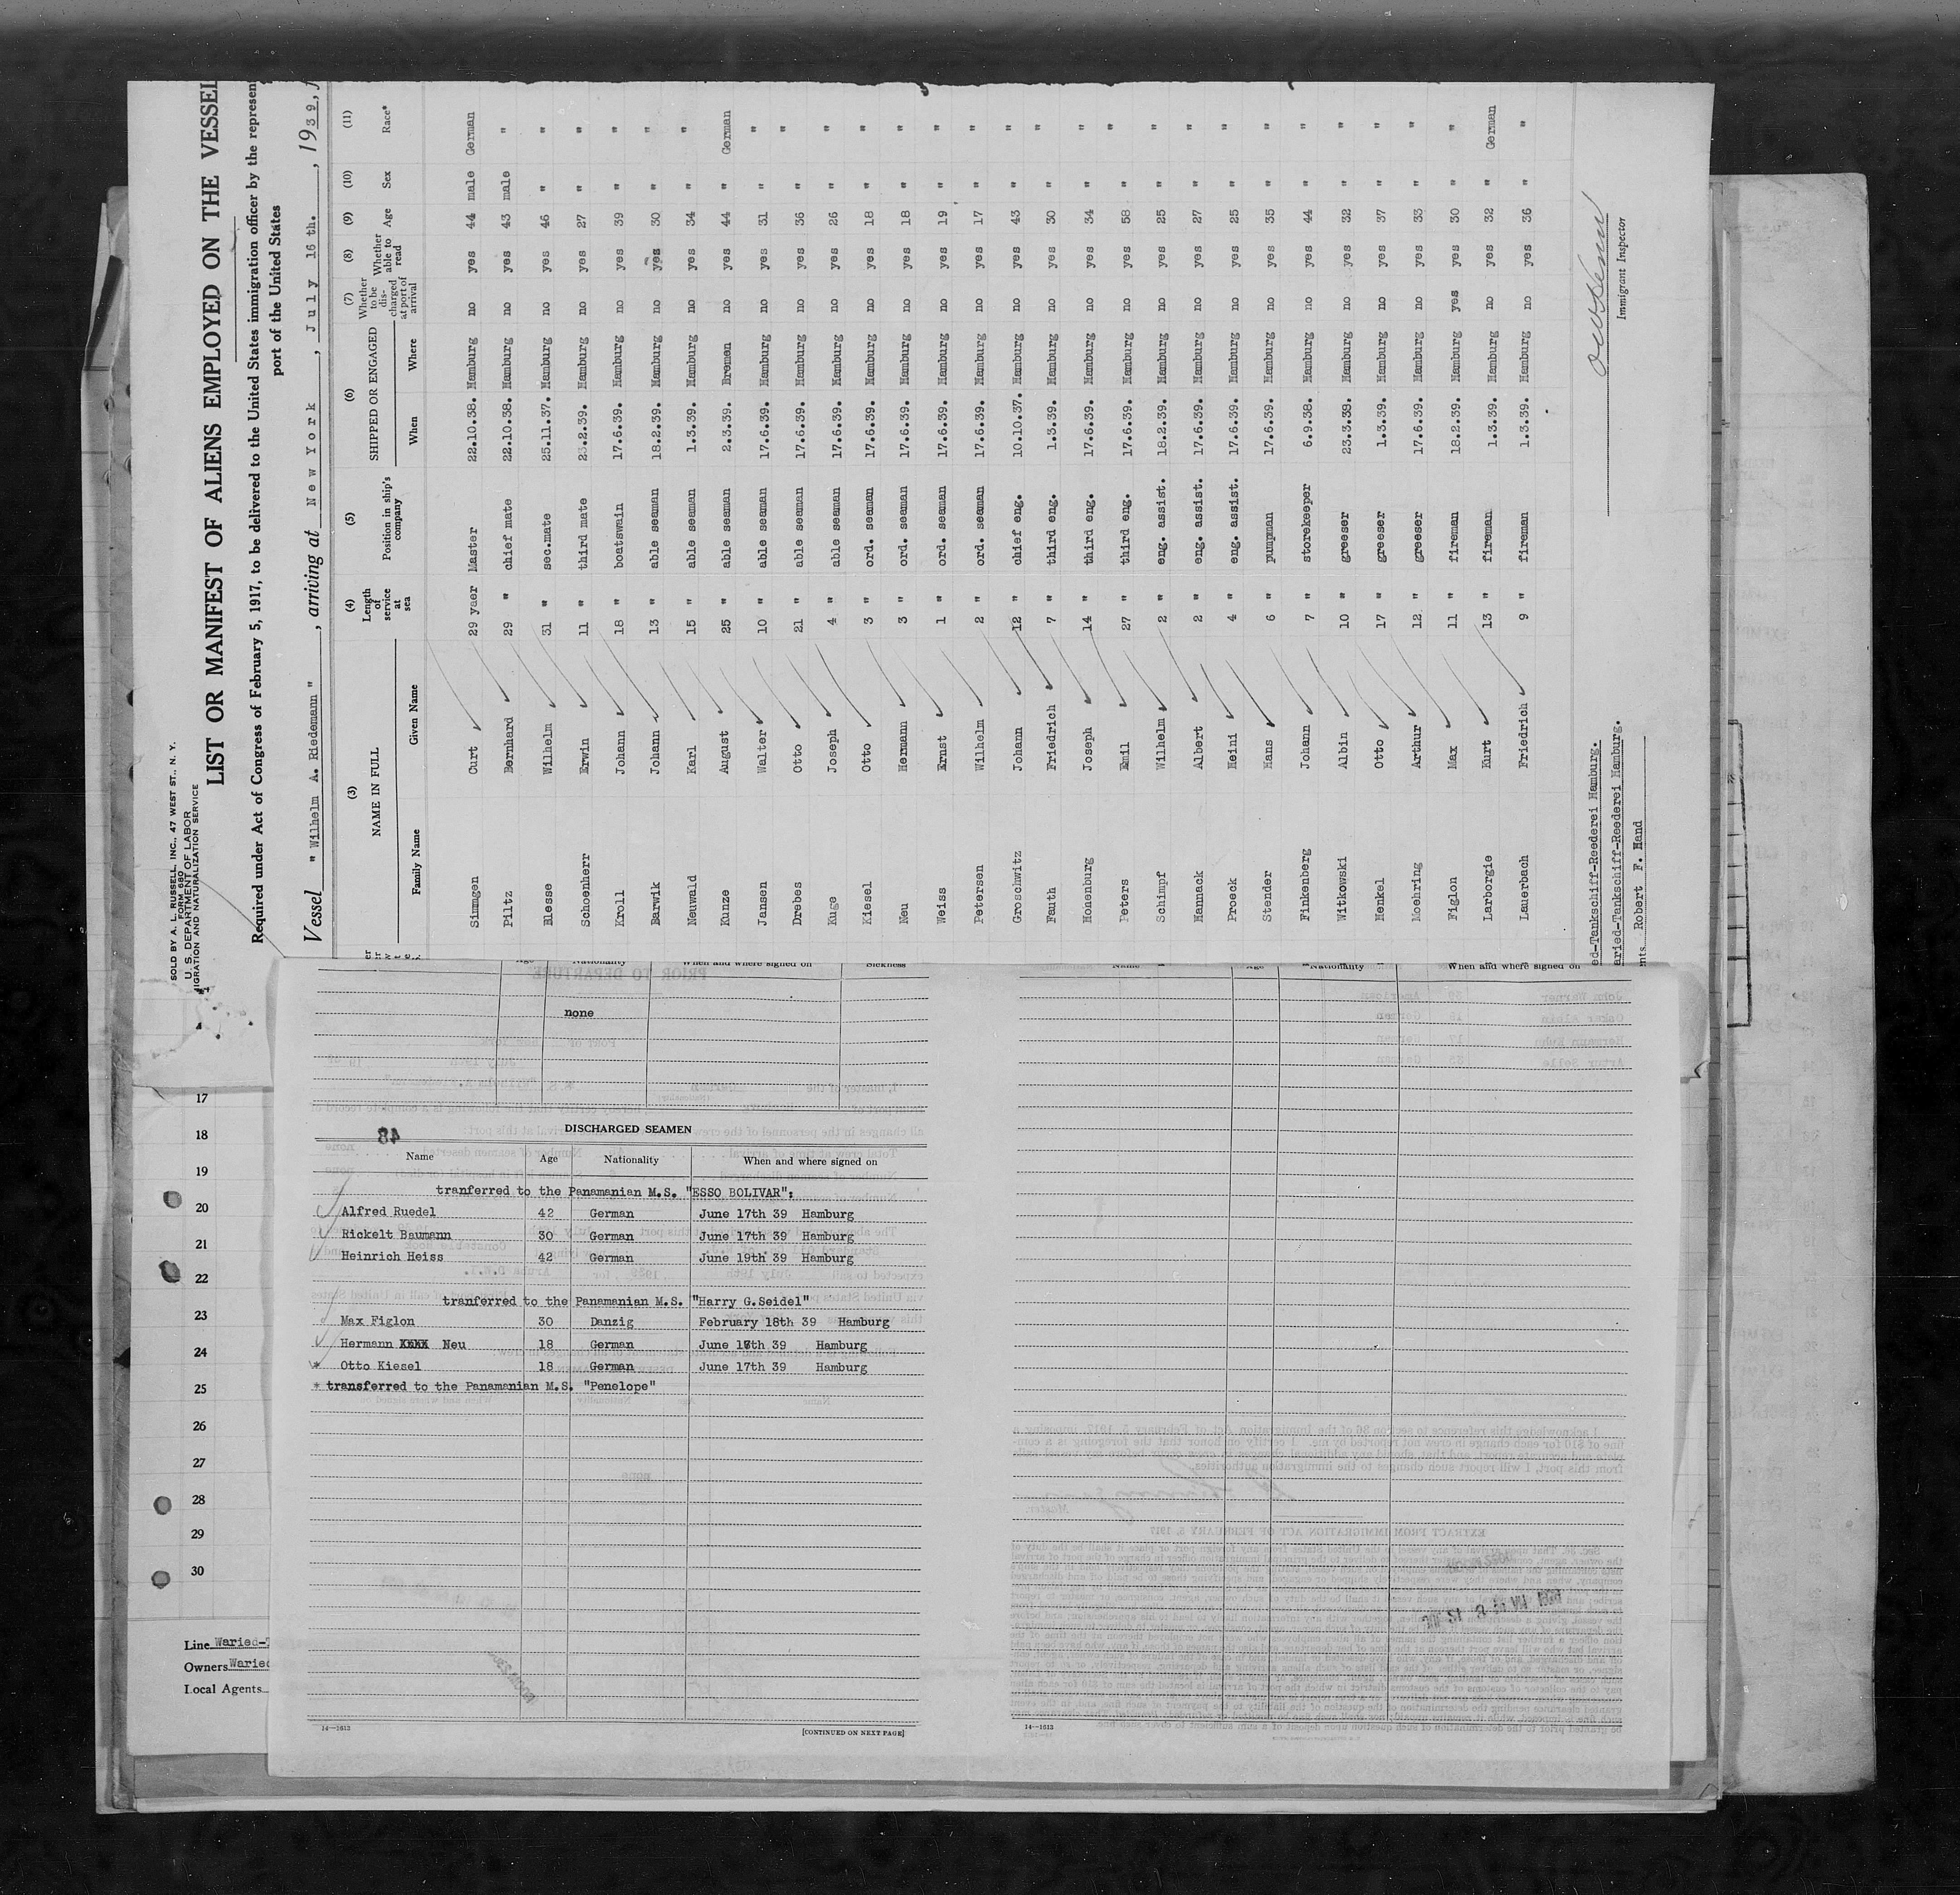 SOLD BY A. L. RUSSELL, INC., 47 WEST ST., N. Y.
FORM 680
U. S. DEPARTMENT OF LABOR
IGRATION AND NATURALIZATION SERVICE
LIST OR MANIFEST OF ALIENS EMPLOYED ON THE VESSEL
Required under Act of Congress of February 5, 1917, to be delivered to the United States immigration officer by the represen
port of the United States
Vessel " Wilhelm A. Riedemann " , arriving at New York , July 16 th. , 1939, f
(3) (4) (5) (6) (7) (8) (9) (10) (11)
NAME IN FULL Length of service at sea Position in ship's company SHIPPED OR ENGAGED Whether to be discharged at port of arrival Whether able to read Age Sex Race*
Family Name Given Name When Where
Simmgen Curt 29 yaer Master 22.10.38. Hamburg no yes 44 male German
Piltz Bernhard 29 " chief mate 22.10.38. Hamburg no yes 43 male "
Blesse Wilhelm 31 " sec.mate 25.11.37. Hamburg no yes 46 " "
Schoenherr Erwin 11 " third mate 23.2.39. Hamburg no yes 27 " "
Kroll Johann 18 " boatswain 17.6.39. Hamburg no yes 39 " "
Barwik Johann 13 " able seaman 18.2.39. Hamburg no yes 30 " "
Neuwald Karl 15 " able seaman 1.3.39. Hamburg no yes 34 " "
Kunze August 25 " able seaman 2.3.39. Bremen no yes 44 " German
Jansen Walter 10 " able seaman 17.6.39. Hamburg no yes 31 " "
Drebes Otto 21 " able seaman 17.6.39. Hamburg no yes 36 " "
Kuge Joseph 4 " able seaman 17.6.39. Hamburg no yes 26 " "
Kiesel Otto 3 " ord. seaman 17.6.39. Hamburg no yes 18 " "
Neu Hermann 3 " ord. seaman 17.6.39. Hamburg no yes 18 " "
Weiss Ernst 1 " ord. seaman 17.6.39. Hamburg no yes 19 " "
Petersen Wilhelm 2 " ord. seaman 17.6.39. Hamburg no yes 17 " "
Groschwitz Johann 12 " chief eng. 10.10.37. Hamburg no yes 43 " "
Fauth Friedrich 7 " third eng. 1.3.39. Hamburg no yes 30 " "
Honenburg Joseph 14 " third eng. 17.6.39. Hamburg no yes 34 " "
Peters Emil 27 " third eng. 17.6.39. Hamburg no yes 58 " "
Schimpf Wilhelm 2 " eng. assist. 18.2.39. Hamburg no yes 25 " "
Hannack Albert 2 " eng. assist. 17.6.39. Hamburg no yes 27 " "
Proeck Heini 4 " eng. assist. 17.6.39. Hamburg no yes 25 " "
Stender Hans 6 " pumpman 17.6.39. Hamburg no yes 35 " "
Finkenberg Johann 7 " storekeeper 6.9.38. Hamburg no yes 44 " "
Witkowski Albin 10 " greeser 23.3.38. Hamburg no yes 32 " "
Henkel Otto 17 " greeser 1.3.39. Hamburg no yes 37 " "
Moehring Arthur 12 " greeser 17.6.39. Hamburg no yes 33 " "
Figlon Max 11 " fireman 18.2.39. Hamburg yes yes 30 " "
Larborgie Kurt 13 " fireman 1.3.39. Hamburg no yes 32 " German
Lauerbach Friedrich 9 " fireman 1.3.39. Hamburg no yes 36 " "
ed-Tankschiff-Reederei Hamburg.
aried-Tankschiff-Reederei Hamburg.
nts Robert F. Hand
Immigrant Inspector
17
18
19
20
21
22
23
24
25
26
27
28
29
30
Line Waried-T
Owners Waried
Local Agents
Age Nationality When and where signed on Sickness
none
48
DISCHARGED SEAMEN
Name Age Nationality When and where signed on
tranferred to the Panamanian M.S. "ESSO BOLIVAR":
Alfred Ruedel 42 German June 17th 39 Hamburg
Rickelt Baumann 30 German June 17th 39 Hamburg
Heinrich Heiss 42 German June 19th 39 Hamburg
tranferred to the Panamanian M.S. "Harry G.Seidel"
Max Figlon 30 Danzig February 18th 39 Hamburg
Hermann Neu 18 German June 17th 39 Hamburg
* Otto Kiesel 18 German June 17th 39 Hamburg
* transferred to the Panamanian M.S. "Penelope"
14—1613
[CONTINUED ON NEXT PAGE]
Name Age Nationality When and where signed on
14—1613